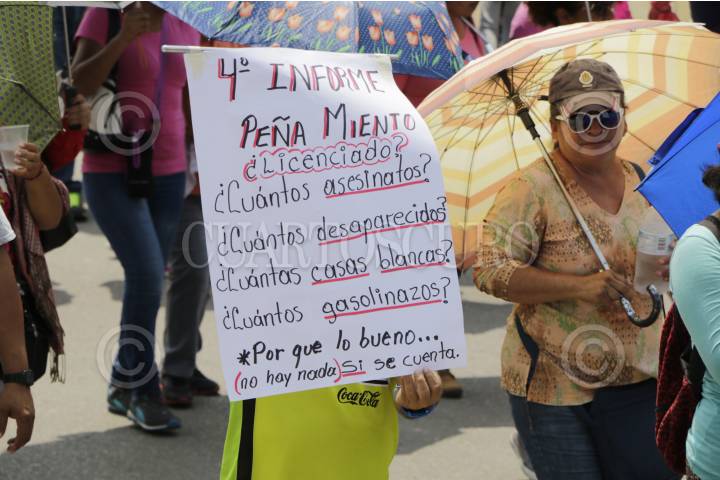 4º INFORME
PEÑA MIENTO
¿Licenciado?
¿Cuántos asesinatos?
¿Cuántos desaparecidos?
¿Cuántas casas blancas?
¿Cuántos gasolinazos?
*Por que lo bueno...
(no hay nada) Si se cuenta.
Coca-Cola
CUARTOSCURO